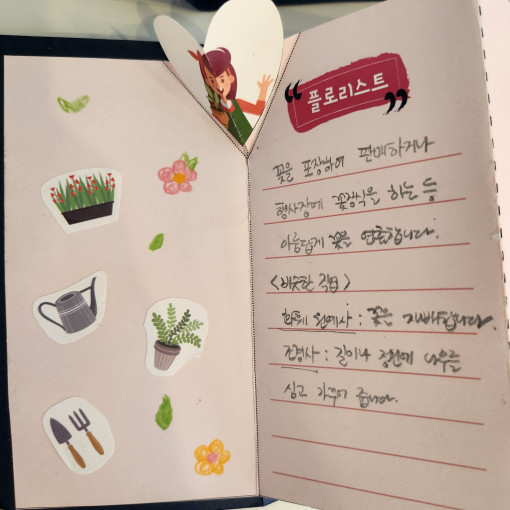 “플로리스트”
꽃을 포장하여 판매하거나
행사장에 꽃장식을 하는 등
아름답게 꽃을 연출합니다.
<비슷한 직업>
화훼 원예사 : 꽃을 재배합니다.
조경사 : 길이나 정원에 나무를
심고 가꾸어 줍니다.